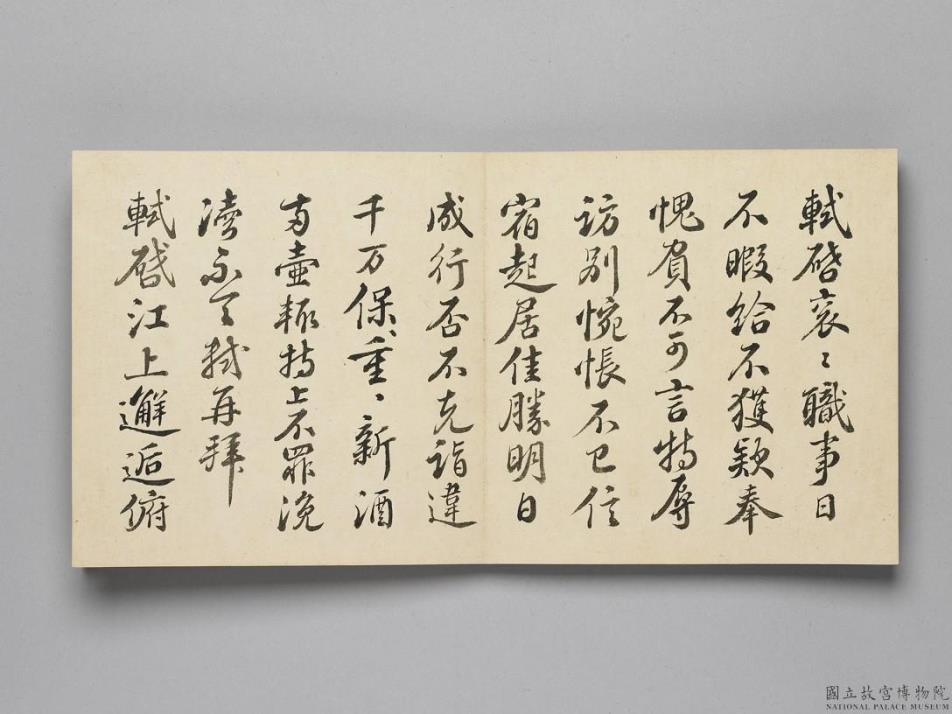 軾啓衮〻職事日
不暇給不獲欵奉
愧負不可言特辱
訪别惋悵不已信
宿起居佳勝明日
成行否不克詣違
千万保〻重〻新酒
两壺輙持上不罪浼
瀆不〻軾再拜
軾啓江上邂逅俯
國立故宮博物院
NATIONAL PALACE MUSEUM